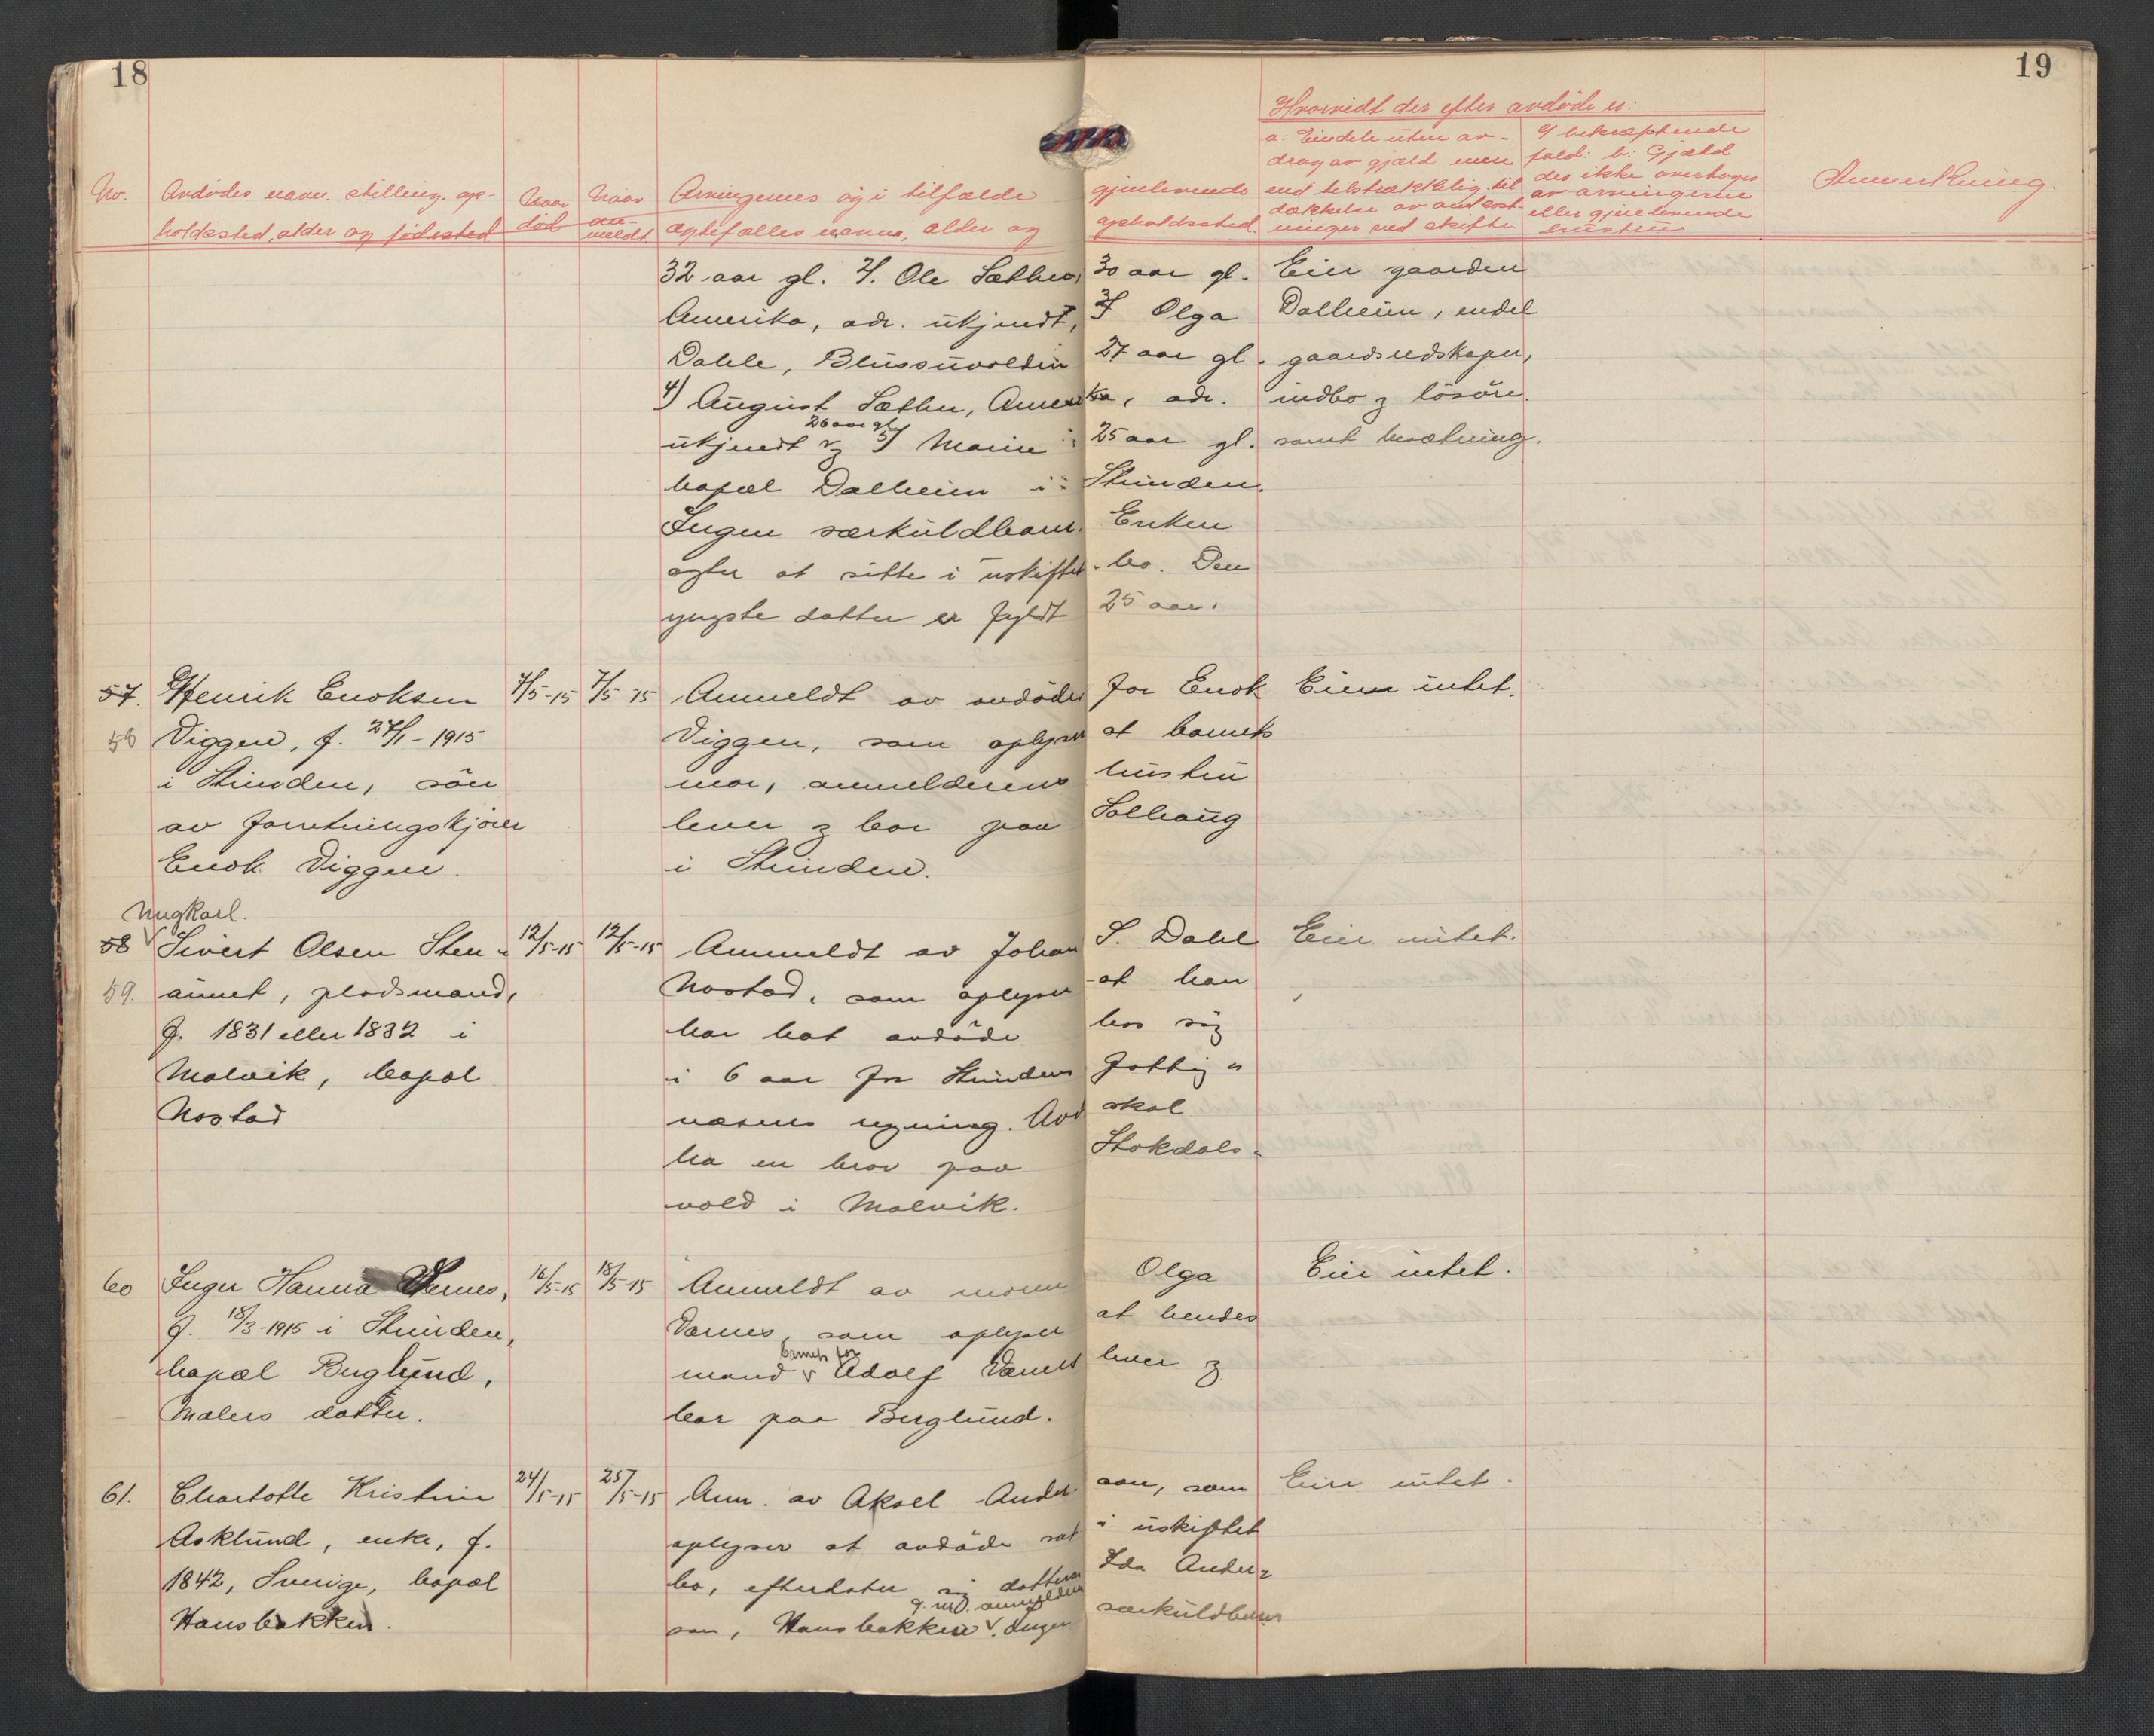 18
19
Hvorvidt der efter avdöde er:
Nr. Avdödes navn. stilling. op- Naar Naar Arvingernes og i tilfælde gjenlevende a: Eiendele uten av- I bekræftende Anmerkning.
holdested, alder og födested död an- ægtefælles navne, alder og opholdssted. drag av gjæld mere fald: b: Gjæld
meldt end tilstrækkelig til des ikke overtages
dækkelse av omkost- av arvingerne
ninger ved skifte. eller gjenlevende
hustru
32 aar gl. 2). Ole Sæther, 30 aar gl. Eier gaarden
Amerika, adr. ukjendt, 3) Olga Dalheim, endel
Dahle, Blussuvolden 27 aar gl. gaardsredskaper,
4) August Sæther, Amerika, adr. indbo og lösöre.
26 aar gl
ukjendt og 5) Marie 25 aar gl. samt besætning.
bopæl Dalheim i Strinden.
Ingen særkuldbarn. Enken
agter at sitte i uskiftet bo. Den
yngste datter er fyldt 25 aar.
57. Henrik Enoksen 7/5-15 7/5 15 Anmeldt av avdödes far Enok Eier intet.
58 Viggen, f. 27/1-1915 Viggen, som oplyser at barnets
i Strinden, sön mor, anmelderens hustru
av forretningskjörer lever og bor paa Solhaug
Enok Viggen. i Strinden.
Ungkarl.
58 Sivert Olsen Sten- 12/5-15 12/5-15 Anmeldt av Johan S. Dahl Eier intet.
59. aunet, pladsmand, Nostad, som oplyser at han
f. 1831 eller 1832 i har hat avdöde hos sig
Malvik, bopæl i 6 aar for Strindens Fattig-
Nostad væsens regning. Avd skal
ha en bror paa Stokdals-
vold i Malvik.
60 Inger Hanna Værnes, 16/5-15 18/5-15 Anmeldt av moren Olga Eier intet.
f. 18/3-1915 i Strinden, Værnes, som oplyser at hendes
barnets far
bopæl Berglund, mand Adolf Værnes lever og
Malers datter. bor paa Berglund.
61. Charlotte Kristine 24/5-15 25/5-15 Anm. av Aksel Anderson, som Eier intet.
Asklund, enke, f. oplyser at avdöde sat i uskiftet
1842, Sverige, bopæl bo, efterlater sig datteren Ida Ander-
g. m. anmelderen
Hansbakken. son, Hansbakken. Ingen særkuldbarn